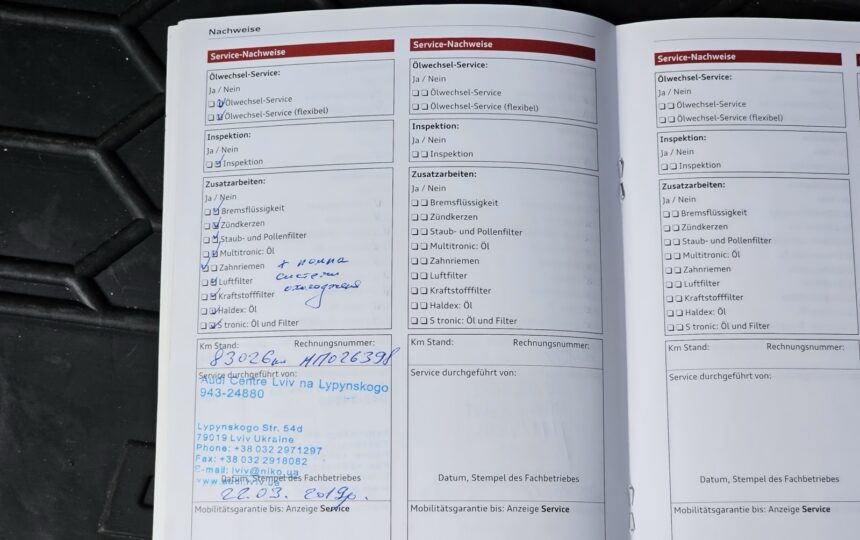 Nachweise
Service-Nachweise
Ölwechsel-Service:
Ja / Nein
Ölwechsel-Service
Ölwechsel-Service (flexibel)
Inspektion:
Ja / Nein
Inspektion
Zusatzarbeiten:
Ja / Nein
Bremsflüssigkeit
Zündkerzen
Staub- und Pollenfilter
Multitronic: Öl
Zahnriemen
+ помпа
системи
охолодження
Luftfilter
Kraftstofffilter
Haldex: Öl
S tronic: Öl und Filter
Km Stand: Rechnungsnummer:
83026км НП026398
Service durchgeführt von:
Audi Centre Lviv na Lypynskogo
943-24880
Lypynskogo Str. 54d
79019 Lviv Ukraine
Phone: +38 032 2971297
Fax: +38 032 2918082
E-mail: lviv@niko.ua
www.audi.lviv.ua
Datum, Stempel des Fachbetriebes
22.03. 2019р.
Mobilitätsgarantie bis: Anzeige Service
Service-Nachweise
Ölwechsel-Service:
Ja / Nein
Ölwechsel-Service
Ölwechsel-Service (flexibel)
Inspektion:
Ja / Nein
Inspektion
Zusatzarbeiten:
Ja / Nein
Bremsflüssigkeit
Zündkerzen
Staub- und Pollenfilter
Multitronic: Öl
Zahnriemen
Luftfilter
Kraftstofffilter
Haldex: Öl
S tronic: Öl und Filter
Km Stand: Rechnungsnummer:
Service durchgeführt von:
Datum, Stempel des Fachbetriebes
Mobilitätsgarantie bis: Anzeige Service
Service-Nachweise
Ölwechsel-Service:
Ja / Nein
Ölwechsel-Service
Ölwechsel-Service (flexibel)
Inspektion:
Ja / Nein
Inspektion
Zusatzarbeiten:
Ja / Nein
Bremsflüssigkeit
Zündkerzen
Staub- und Pollenfilter
Multitronic: Öl
Zahnriemen
Luftfilter
Kraftstofffilter
Haldex: Öl
S tronic: Öl und Filter
Km Stand: Rechnungsnummer:
Service durchgeführt von:
Datum, Stempel des Fachbetriebes
Mobilitätsgarantie bis: Anzeige Service